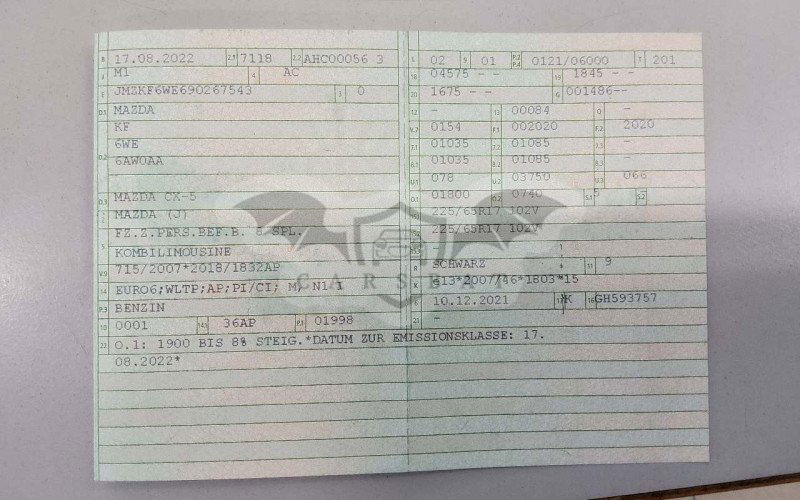 B 17.08.2022 2.1 7118 2.2 AHC00056 3
J M1 4 AC
E JMZKF6WE690267543 3 0
D.1 MAZDA
KF
D.2 6WE
6AW0AA
D.3 MAZDA CX-5
2 MAZDA (J)
5 FZ.Z.PERS.BEF.B. 8 SPL.
KOMBILIMOUSINE
V.9 715/2007*2018/1832AP
14 EURO6;WLTP;AP;PI/CI; M, N1 I
P.3 BENZIN
10 0001 14.1 36AP P.1 01998
22 O.1: 1900 BIS 8% STEIG.*DATUM ZUR EMISSIONSKLASSE: 17.
08.2022*
L 02 9 01 P.2 P.4 0121/06000 T 201
18 04575 - - 19 1845 - -
20 1675 - - G 001486--
12 - 13 00084 Q -
V.7 0154 F.1 002020 F.2 2020
7.1 01035 7.2 01085 7.3 -
8.1 01035 8.2 01085 8.3 -
U.1 078 U.2 03750 U.3 066
O.1 01800 O.2 0740 S.1 5 S.2
15.1 225/65R17 102V
15.2 225/65R17 102V
R SCHWARZ 11 9
K e13*2007/46*1803*15
6 10.12.2021 17 K 16 GH593757
21 -
CARSBAT